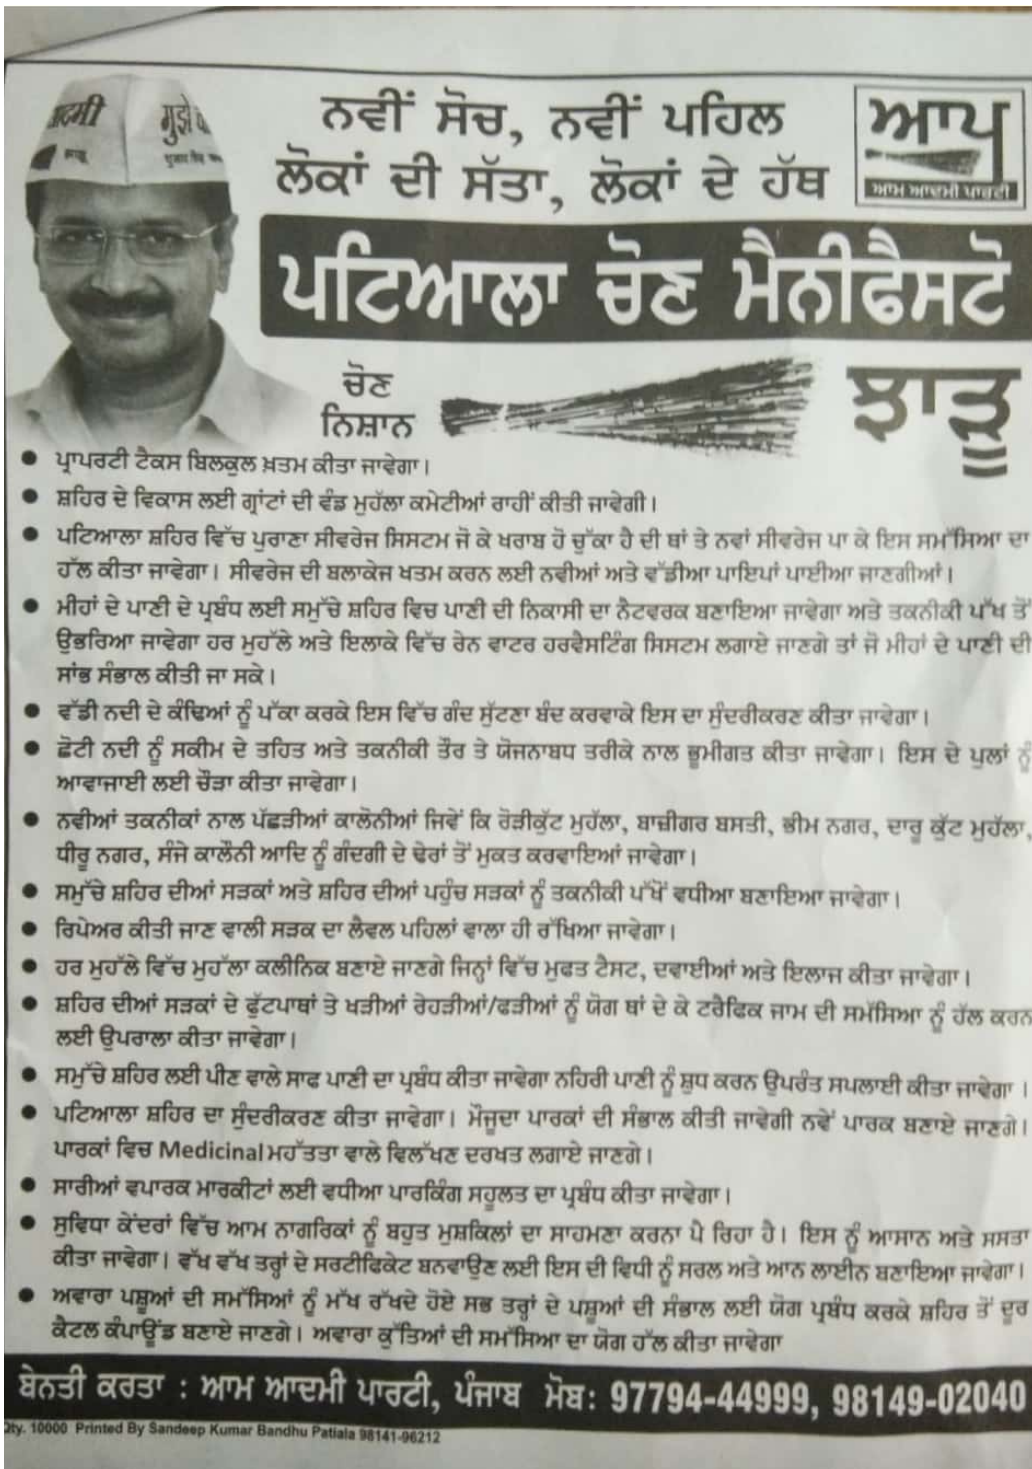 ਆਦਮੀ
मुझे
ਨਵੀਂ ਸੋਚ, ਨਵੀਂ ਪਹਿਲ
ਲੋਕਾਂ ਦੀ ਸੱਤਾ, ਲੋਕਾਂ ਦੇ ਹੱਥ
ਆਪ
ਆਮ ਆਦਮੀ ਪਾਰਟੀ
ਪਟਿਆਲਾ ਚੋਣ ਮੈਨੀਫੈਸਟੋ
ਚੋਣ
ਨਿਸ਼ਾਨ
ਝਾੜੂ
• ਪ੍ਰਾਪਰਟੀ ਟੈਕਸ ਬਿਲਕੁਲ ਖ਼ਤਮ ਕੀਤਾ ਜਾਵੇਗਾ।
• ਸ਼ਹਿਰ ਦੇ ਵਿਕਾਸ ਲਈ ਗ੍ਰਾਂਟਾਂ ਦੀ ਵੰਡ ਮੁਹੱਲਾ ਕਮੇਟੀਆਂ ਰਾਹੀਂ ਕੀਤੀ ਜਾਵੇਗੀ।
• ਪਟਿਆਲਾ ਸ਼ਹਿਰ ਵਿੱਚ ਪੁਰਾਣਾ ਸੀਵਰੇਜ ਸਿਸਟਮ ਜੋ ਕੇ ਖਰਾਬ ਹੋ ਚੁੱਕਾ ਹੈ ਦੀ ਥਾਂ ਤੇ ਨਵਾਂ ਸੀਵਰੇਜ ਪਾ ਕੇ ਇਸ ਸਮੱਸਿਆ ਦਾ
ਹੱਲ ਕੀਤਾ ਜਾਵੇਗਾ। ਸੀਵਰੇਜ ਦੀ ਬਲਾਕੇਜ ਖਤਮ ਕਰਨ ਲਈ ਨਵੀਆਂ ਅਤੇ ਵੱਡੀਆ ਪਾਇਪਾਂ ਪਾਈਆ ਜਾਣਗੀਆਂ।
• ਮੀਹਾਂ ਦੇ ਪਾਣੀ ਦੇ ਪ੍ਰਬੰਧ ਲਈ ਸਮੁੱਚੇ ਸ਼ਹਿਰ ਵਿਚ ਪਾਣੀ ਦੀ ਨਿਕਾਸੀ ਦਾ ਨੈਟਵਰਕ ਬਣਾਇਆ ਜਾਵੇਗਾ ਅਤੇ ਤਕਨੀਕੀ ਪੱਖ ਤੋਂ
ਉਭਰਿਆ ਜਾਵੇਗਾ ਹਰ ਮੁਹੱਲੇ ਅਤੇ ਇਲਾਕੇ ਵਿੱਚ ਰੇਨ ਵਾਟਰ ਹਰਵੈਸਟਿੰਗ ਸਿਸਟਮ ਲਗਾਏ ਜਾਣਗੇ ਤਾਂ ਜੋ ਮੀਹਾਂ ਦੇ ਪਾਣੀ ਦੀ
ਸਾਂਭ ਸੰਭਾਲ ਕੀਤੀ ਜਾ ਸਕੇ।
• ਵੱਡੀ ਨਦੀ ਦੇ ਕੰਢਿਆਂ ਨੂੰ ਪੱਕਾ ਕਰਕੇ ਇਸ ਵਿੱਚ ਗੰਦ ਸੁੱਟਣਾ ਬੰਦ ਕਰਵਾਕੇ ਇਸ ਦਾ ਸੁੰਦਰੀਕਰਣ ਕੀਤਾ ਜਾਵੇਗਾ।
• ਛੋਟੀ ਨਦੀ ਨੂੰ ਸਕੀਮ ਦੇ ਤਹਿਤ ਅਤੇ ਤਕਨੀਕੀ ਤੌਰ ਤੇ ਯੋਜਨਾਬਧ ਤਰੀਕੇ ਨਾਲ ਭੂਮੀਗਤ ਕੀਤਾ ਜਾਵੇਗਾ। ਇਸ ਦੇ ਪੁਲਾਂ ਨੂੰ
ਆਵਾਜਾਈ ਲਈ ਚੌੜਾ ਕੀਤਾ ਜਾਵੇਗਾ।
• ਨਵੀਆਂ ਤਕਨੀਕਾਂ ਨਾਲ ਪੱਛੜੀਆਂ ਕਾਲੋਨੀਆਂ ਜਿਵੇਂ ਕਿ ਰੋੜੀਕੁੱਟ ਮੁਹੱਲਾ, ਬਾਜ਼ੀਗਰ ਬਸਤੀ, ਭੀਮ ਨਗਰ, ਦਾਰੂ ਕੁੱਟ ਮੁਹੱਲਾ,
ਧੀਰੂ ਨਗਰ, ਸੰਜੇ ਕਾਲੌਨੀ ਆਦਿ ਨੂੰ ਗੰਦਗੀ ਦੇ ਢੇਰਾਂ ਤੋਂ ਮੁਕਤ ਕਰਵਾਇਆਂ ਜਾਵੇਗਾ।
• ਸਮੁੱਚੇ ਸ਼ਹਿਰ ਦੀਆਂ ਸੜਕਾਂ ਅਤੇ ਸ਼ਹਿਰ ਦੀਆਂ ਪਹੁੰਚ ਸੜਕਾਂ ਨੂੰ ਤਕਨੀਕੀ ਪੱਖੋਂ ਵਧੀਆ ਬਣਾਇਆ ਜਾਵੇਗਾ।
• ਰਿਪੇਅਰ ਕੀਤੀ ਜਾਣ ਵਾਲੀ ਸੜਕ ਦਾ ਲੈਵਲ ਪਹਿਲਾਂ ਵਾਲਾ ਹੀ ਰੱਖਿਆ ਜਾਵੇਗਾ।
• ਹਰ ਮੁਹੱਲੇ ਵਿੱਚ ਮੁਹੱਲਾ ਕਲੀਨਿਕ ਬਣਾਏ ਜਾਣਗੇ ਜਿਨ੍ਹਾਂ ਵਿੱਚ ਮੁਫਤ ਟੈਸਟ, ਦਵਾਈਆਂ ਅਤੇ ਇਲਾਜ ਕੀਤਾ ਜਾਵੇਗਾ।
• ਸ਼ਹਿਰ ਦੀਆਂ ਸੜਕਾਂ ਦੇ ਫੁੱਟਪਾਥਾਂ ਤੇ ਖੜੀਆਂ ਰੇਹੜੀਆਂ/ਫੜੀਆਂ ਨੂੰ ਯੋਗ ਥਾਂ ਦੇ ਕੇ ਟਰੈਫਿਕ ਜਾਮ ਦੀ ਸਮੱਸਿਆ ਨੂੰ ਹੱਲ ਕਰਨ
ਲਈ ਉਪਰਾਲਾ ਕੀਤਾ ਜਾਵੇਗਾ।
• ਸਮੁੱਚੇ ਸ਼ਹਿਰ ਲਈ ਪੀਣ ਵਾਲੇ ਸਾਫ ਪਾਣੀ ਦਾ ਪ੍ਰਬੰਧ ਕੀਤਾ ਜਾਵੇਗਾ ਨਹਿਰੀ ਪਾਣੀ ਨੂੰ ਸ਼ੁਧ ਕਰਨ ਉਪਰੰਤ ਸਪਲਾਈ ਕੀਤਾ ਜਾਵੇਗਾ ।
• ਪਟਿਆਲਾ ਸ਼ਹਿਰ ਦਾ ਸੁੰਦਰੀਕਰਣ ਕੀਤਾ ਜਾਵੇਗਾ। ਮੌਜੂਦਾ ਪਾਰਕਾਂ ਦੀ ਸੰਭਾਲ ਕੀਤੀ ਜਾਵੇਗੀ ਨਵੇਂ ਪਾਰਕ ਬਣਾਏ ਜਾਣਗੇ।
ਪਾਰਕਾਂ ਵਿਚ Medicinal ਮਹੱਤਤਾ ਵਾਲੇ ਵਿਲੱਖਣ ਦਰਖਤ ਲਗਾਏ ਜਾਣਗੇ।
• ਸਾਰੀਆਂ ਵਪਾਰਕ ਮਾਰਕੀਟਾਂ ਲਈ ਵਧੀਆ ਪਾਰਕਿੰਗ ਸਹੂਲਤ ਦਾ ਪ੍ਰਬੰਧ ਕੀਤਾ ਜਾਵੇਗਾ।
• ਸੁਵਿਧਾ ਕੇਂਦਰਾਂ ਵਿੱਚ ਆਮ ਨਾਗਰਿਕਾਂ ਨੂੰ ਬਹੁਤ ਮੁਸ਼ਕਿਲਾਂ ਦਾ ਸਾਹਮਣਾ ਕਰਨਾ ਪੈ ਰਿਹਾ ਹੈ। ਇਸ ਨੂੰ ਆਸਾਨ ਅਤੇ ਸਸਤਾ
ਕੀਤਾ ਜਾਵੇਗਾ। ਵੱਖ ਵੱਖ ਤਰ੍ਹਾਂ ਦੇ ਸਰਟੀਫਿਕੇਟ ਬਨਵਾਉਣ ਲਈ ਇਸ ਦੀ ਵਿਧੀ ਨੂੰ ਸਰਲ ਅਤੇ ਆਨ ਲਾਈਨ ਬਣਾਇਆ ਜਾਵੇਗਾ।
• ਅਵਾਰਾ ਪਸ਼ੂਆਂ ਦੀ ਸਮੱਸਿਆਂ ਨੂੰ ਮੱਖ ਰੱਖਦੇ ਹੋਏ ਸਭ ਤਰ੍ਹਾਂ ਦੇ ਪਸ਼ੂਆਂ ਦੀ ਸੰਭਾਲ ਲਈ ਯੋਗ ਪ੍ਰਬੰਧ ਕਰਕੇ ਸ਼ਹਿਰ ਤੋਂ ਦੂਰ
ਕੈਟਲ ਕੰਪਾਊਂਡ ਬਣਾਏ ਜਾਣਗੇ। ਅਵਾਰਾ ਕੁੱਤਿਆਂ ਦੀ ਸਮੱਸਿਆ ਦਾ ਯੋਗ ਹੱਲ ਕੀਤਾ ਜਾਵੇਗਾ
ਬੇਨਤੀ ਕਰਤਾ : ਆਮ ਆਦਮੀ ਪਾਰਟੀ, ਪੰਜਾਬ ਮੋਬ: 97794-44999, 98149-02040
Qty. 10000 Printed By Sandeep Kumar Bandhu Patiala 98141-96212